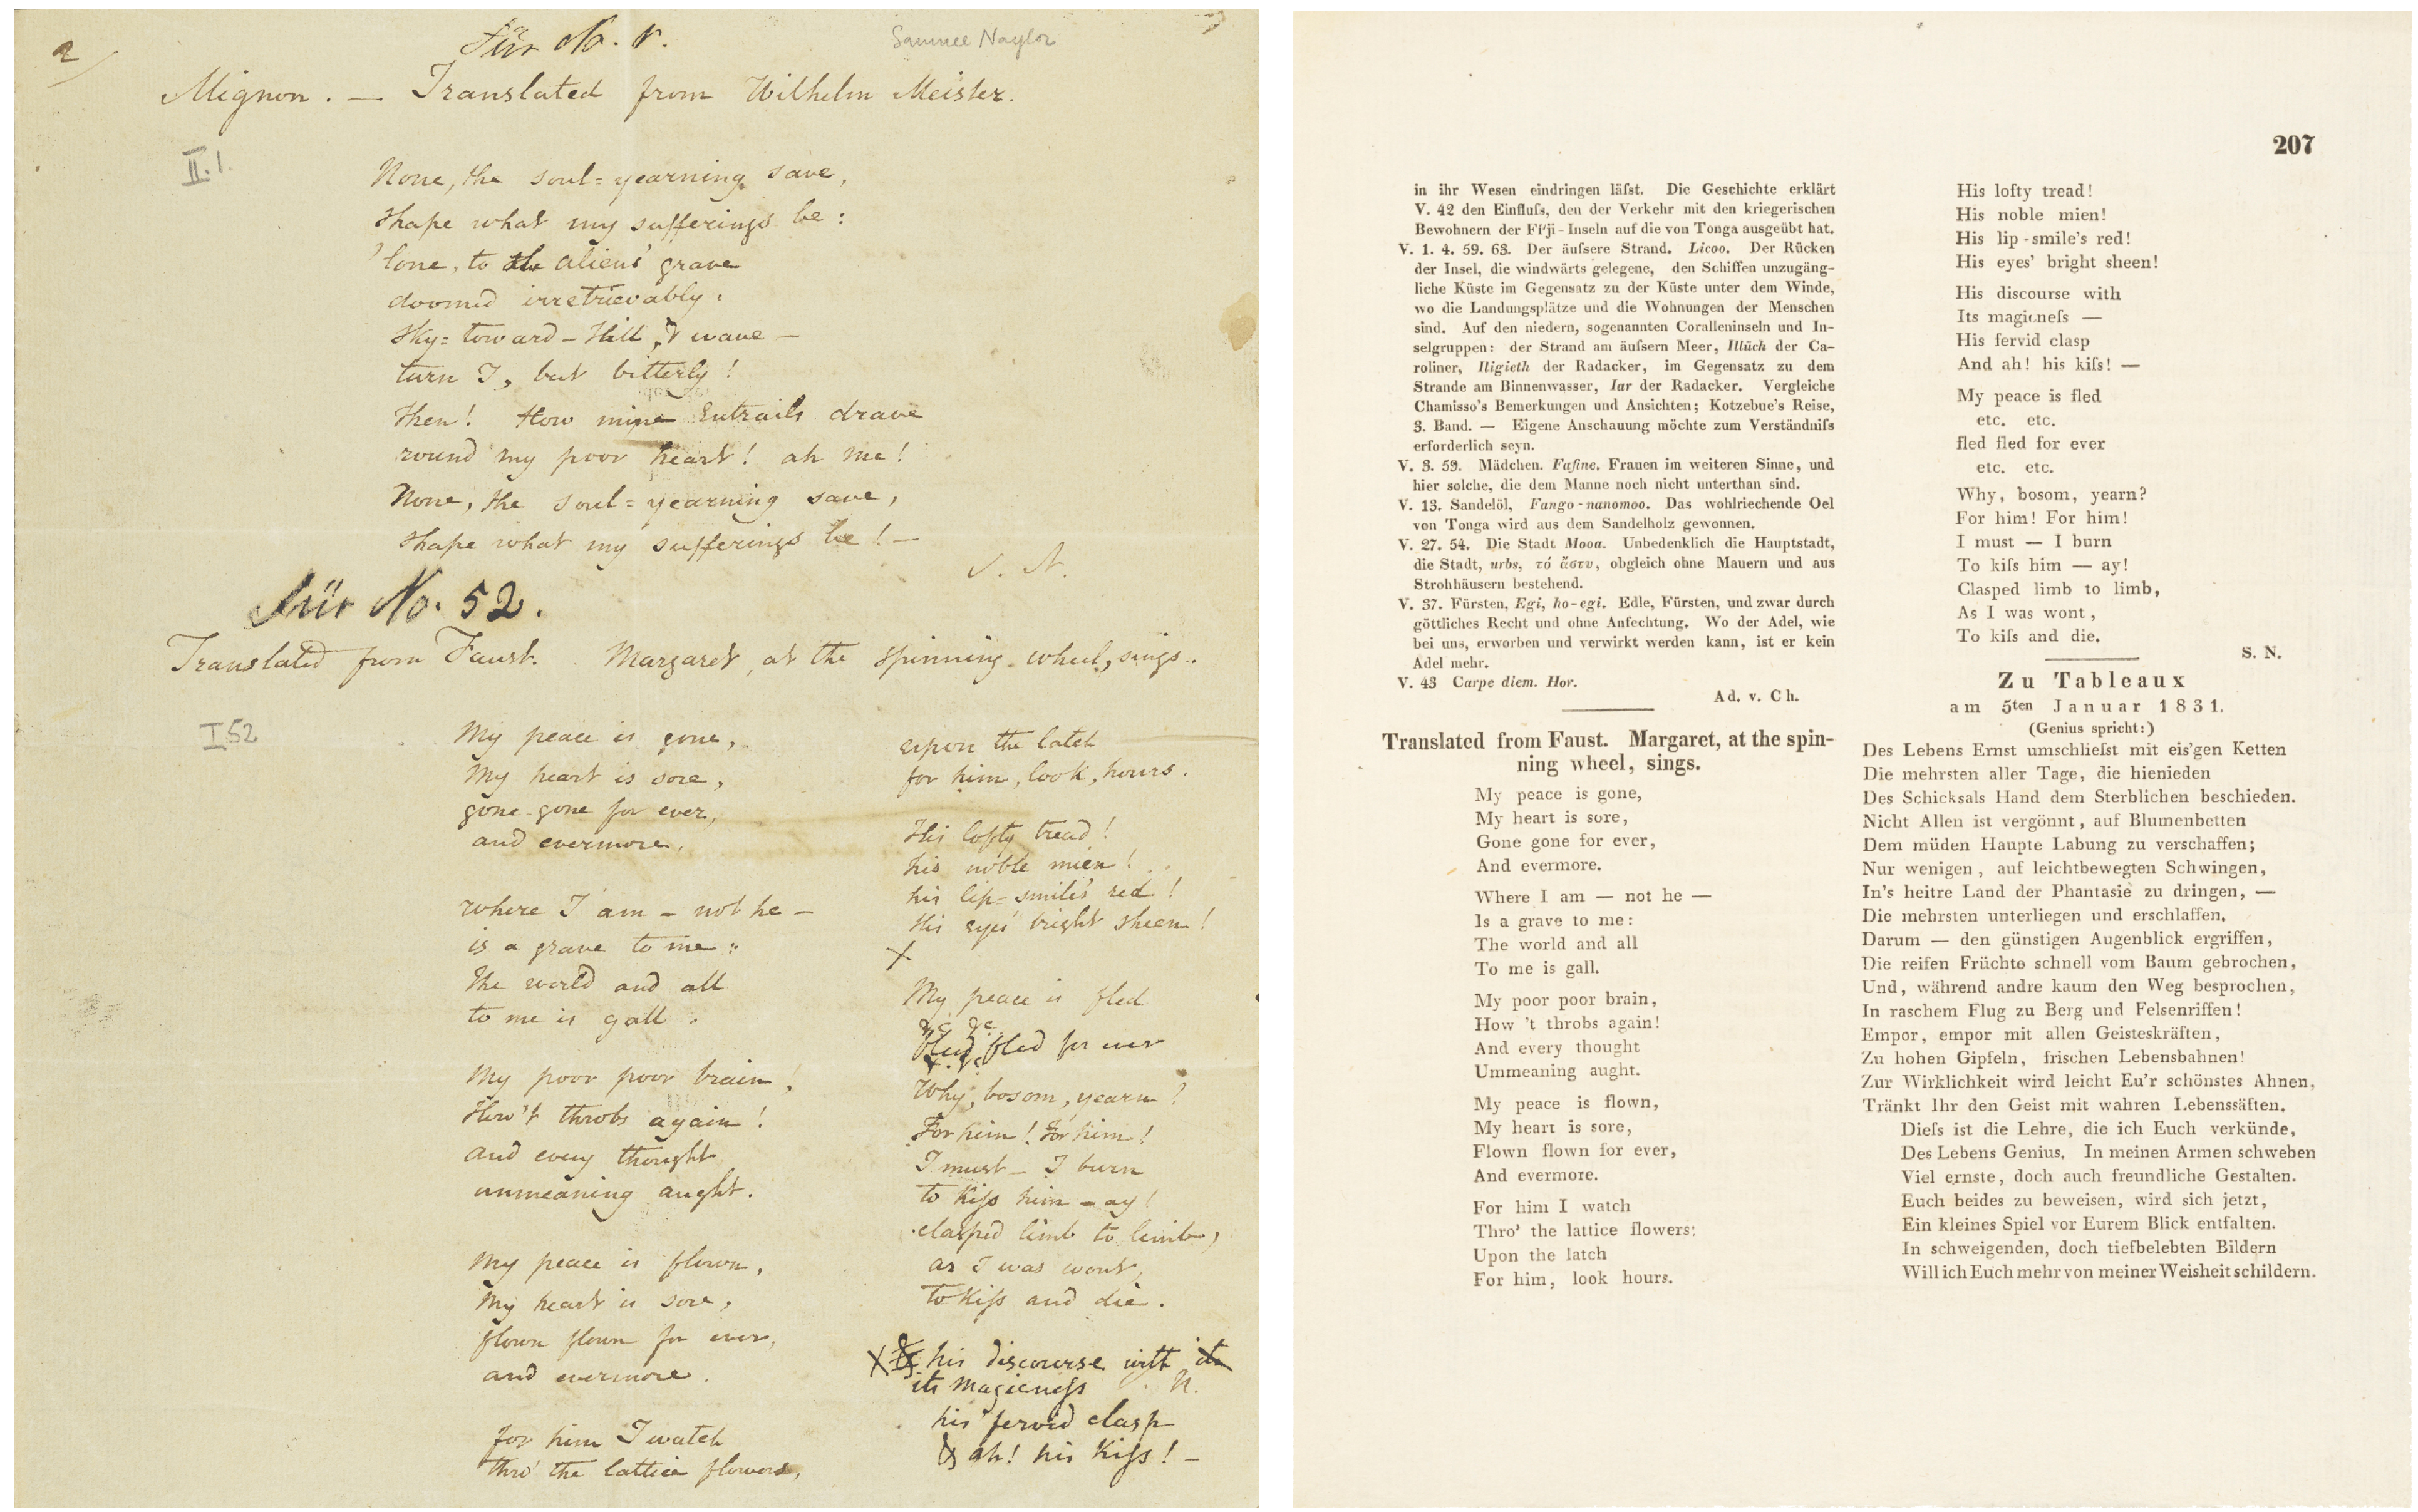 2
Für No. 1.
Samuel Naylor
Mignon. — Translated from Wilhelm Meister.
II.1.
None, the soul=yearning save,
shape what my sufferings be:
'lone, to the aliens' grave
doomed irretrievably.
Sky=toward – still, & wave –
turn I, but bitterly!
Then! How mine Entrails drave
round my poor heart! ah me!
None, the soul=yearning save,
shape what my sufferings be! –
S. N.
Für No. 52.
Translated from Faust. Margaret, at the spinning wheel, sings.
I 52
My peace is gone,
My heart is sore,
gone gone for ever,
and evermore.
where I am – not he –
is a grave to me:
The world and all
to me is gall.
My poor poor brain!
How't throbs again!
and every thought
unmeaning aught.
My peace is flown,
My heart is sore,
flown flown for ever,
and evermore.
for him I watch
thro' the lattice flowers,
upon the latch
for him, look, hours.
His lofty tread!
his noble mien!
his lip=smile's red!
His eyes' bright sheen!
X
My peace is fled
&c &c
fled fled for ever
Why, bosom, yearn?
For him! For him!
I must – I burn
to kiſs him – ay!
clasped limb to limb,
as I was wont,
to kiſs and die.
X his discourse with its
its magicneſs
N.
his fervid clasp
& ah! his kiſs! –
207
in ihr Wesen eindringen läſst. Die Geschichte erklärt
V. 42 den Einfluſs, den der Verkehr mit den kriegerischen
Bewohnern der Fi'ji-Inseln auf die von Tonga ausgeübt hat.
V. 1. 4. 59. 63. Der äuſsere Strand. Licoo. Der Rücken
der Insel, die windwärts gelegene, den Schiffen unzugäng-
liche Küste im Gegensatz zu der Küste unter dem Winde,
wo die Landungsplätze und die Wohnungen der Menschen
sind. Auf den niedern, sogenannten Coralleninseln und In-
selgruppen: der Strand am äuſsern Meer, Illüch der Ca-
roliner, Iligieth der Radacker, im Gegensatz zu dem
Strande am Binnenwasser, Iar der Radacker. Vergleiche
Chamisso's Bemerkungen und Ansichten; Kotzebue's Reise,
3. Band. — Eigene Anschauung möchte zum Verständniſs
erforderlich seyn.
V. 3. 59. Mädchen. Faſine. Frauen im weiteren Sinne, und
hier solche, die dem Manne noch nicht unterthan sind.
V. 13. Sandelöl, Fango-nanomoo. Das wohlriechende Oel
von Tonga wird aus dem Sandelholz gewonnen.
V. 27. 54. Die Stadt Mooa. Unbedenklich die Hauptstadt,
die Stadt, urbs, τό ἄστυ, obgleich ohne Mauern und aus
Strohhäusern bestehend.
V. 37. Fürsten, Egi, ho-egi. Edle, Fürsten, und zwar durch
göttliches Recht und ohne Anfechtung. Wo der Adel, wie
bei uns, erworben und verwirkt werden kann, ist er kein
Adel mehr.
V. 43 Carpe diem. Hor.
Ad. v. Ch.
Translated from Faust. Margaret, at the spin-
ning wheel, sings.
My peace is gone,
My heart is sore,
Gone gone for ever,
And evermore.
Where I am — not he —
Is a grave to me:
The world and all
To me is gall.
My poor poor brain,
How 't throbs again!
And every thought
Ummeaning aught.
My peace is flown,
My heart is sore,
Flown flown for ever,
And evermore.
For him I watch
Thro' the lattice flowers:
Upon the latch
For him, look hours.
His lofty tread!
His noble mien!
His lip-smile's red!
His eyes' bright sheen!
His discourse with
Its magicneſs —
His fervid clasp
And ah! his kiſs! —
My peace is fled
etc. etc.
fled fled for ever
etc. etc.
Why, bosom, yearn?
For him! For him!
I must — I burn
To kiſs him — ay!
Clasped limb to limb,
As I was wont,
To kiſs and die.
S. N.
Zu Tableaux
am 5ten Januar 1831.
(Genius spricht:)
Des Lebens Ernst umschlieſst mit eis'gen Ketten
Die mehrsten aller Tage, die hienieden
Des Schicksals Hand dem Sterblichen beschieden.
Nicht Allen ist vergönnt, auf Blumenbetten
Dem müden Haupte Labung zu verschaffen;
Nur wenigen, auf leichtbewegten Schwingen,
In's heitre Land der Phantasie zu dringen, —
Die mehrsten unterliegen und erschlaffen.
Darum — den günstigen Augenblick ergriffen,
Die reifen Früchte schnell vom Baum gebrochen,
Und, während andre kaum den Weg besprochen,
In raschem Flug zu Berg und Felsenriffen!
Empor, empor mit allen Geisteskräften,
Zu hohen Gipfeln, frischen Lebensbahnen!
Zur Wirklichkeit wird leicht Eu'r schönstes Ahnen,
Tränkt Ihr den Geist mit wahren Lebenssäften.
Dieſs ist die Lehre, die ich Euch verkünde,
Des Lebens Genius. In meinen Armen schweben
Viel ernste, doch auch freundliche Gestalten.
Euch beides zu beweisen, wird sich jetzt,
Ein kleines Spiel vor Eurem Blick entfalten.
In schweigenden, doch tiefbelebten Bildern
Will ich Euch mehr von meiner Weisheit schildern.